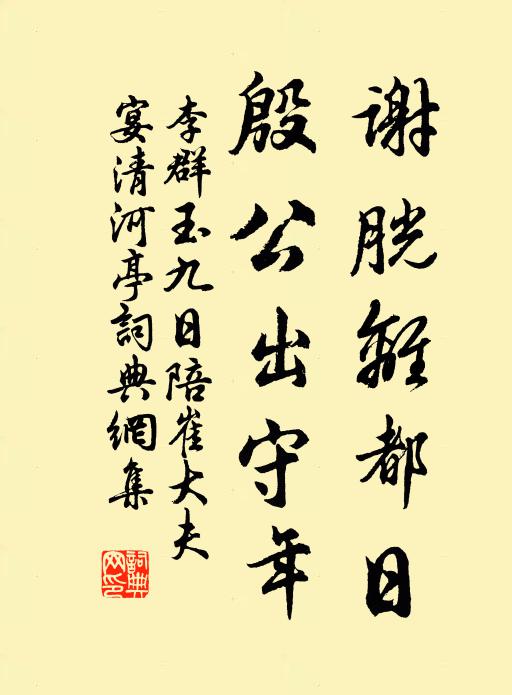 謝朓離都日
殷公出守年
李群玉九日陪崔大夫
宴清河亭詞典網集
詞典
网印